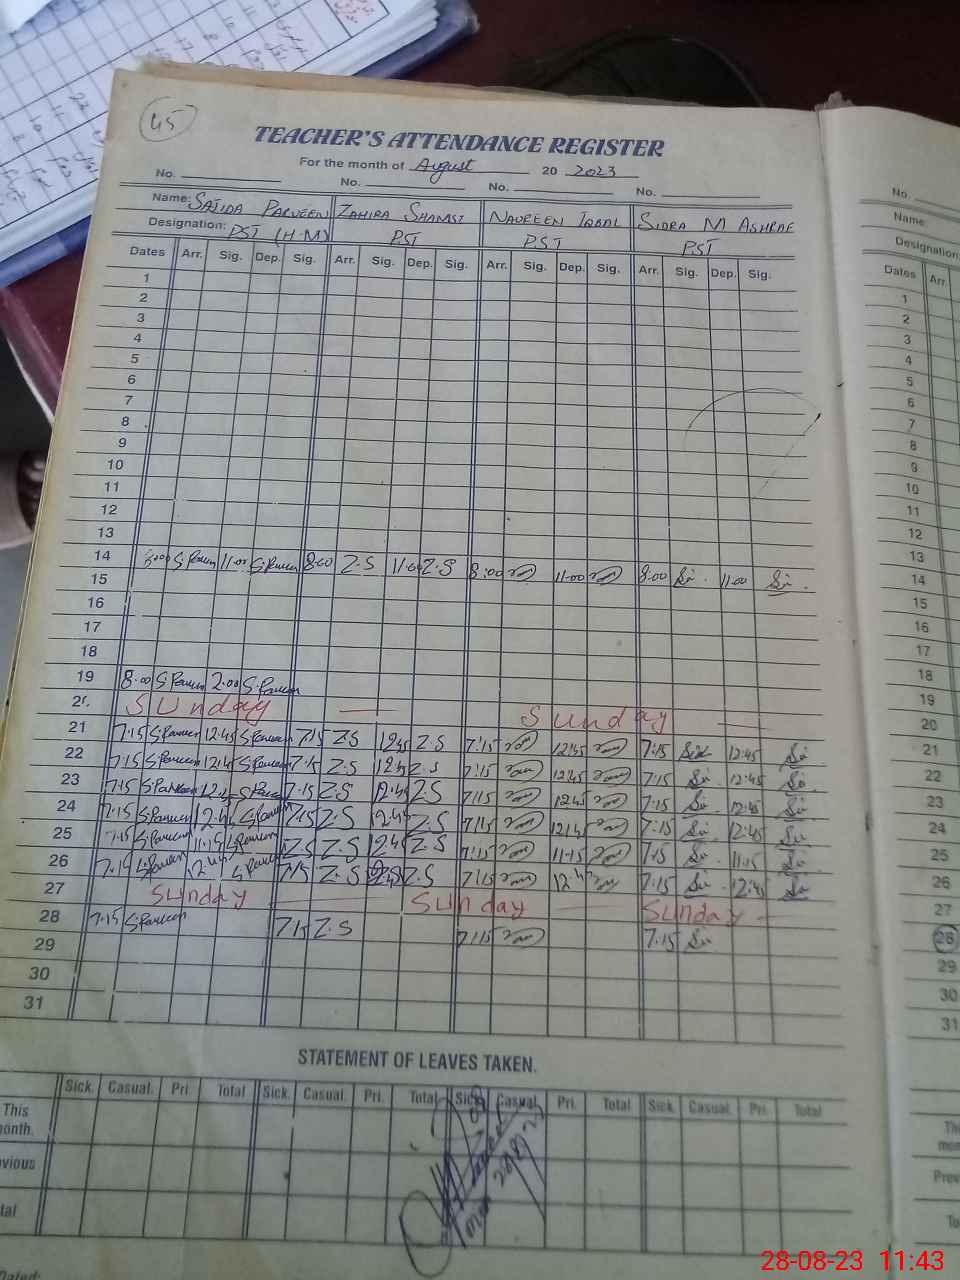 45
TEACHER'S ATTENDANCE REGISTER
For the month of August 20 2023
No. No. No. No.
Name: SAJIDA PARVEEN ZAHIRA SHAMST NAUREEN IQBAL SIDRA M ASHRAF
Designation: PST (H.M) PST PST PST
Dates Arr. Sig. Dep. Sig. Arr. Sig. Dep. Sig. Arr. Sig. Dep. Sig. Arr. Sig. Dep. Sig.
1
2
3
4
5
6
7
8
9
10
11
12
13
14 8:00 S.Parveen 11:00 S.Parveen 8:00 Z.S 11:00 Z.S 8:00 11:00 8:00 11:00
15
16
17
18
19 8:00 S.Parveen 2:00 S.Parveen
20 Sunday Sunday
21 7:15 S.Parveen 12:45 S.Parveen 7:15 Z.S 12:45 Z.S 7:15 12:45 7:15 12:45
22 7:15 S.Parveen 12:45 S.Parveen 7:15 Z.S 12:45 Z.S 7:15 12:45 7:15 12:45
23 7:15 S.Parveen 12:45 7:15 Z.S 12:45 Z.S 7:15 12:45 7:15 12:45
24 7:15 S.Parveen 12:45 S.Parveen 7:15 Z.S 12:45 Z.S 7:15 12:45 7:15 12:45
25 7:15 S.Parveen 11:15 S.Parveen Z.S Z.S 12:45 Z.S 7:15 11:15 7:15 11:15
26 7:15 S.Parveen 12:45 S.Parveen 7:15 Z.S Z.S 7:15 12:45 7:15 12:45
27 Sunday Sunday Sunday
28 7:15 S.Parveen 7:15 Z.S 7:15 7:15
29
30
31
STATEMENT OF LEAVES TAKEN.
Sick. Casual. Pri. Total Sick. Casual. Pri. Total Sick. Casual. Pri. Total Sick. Casual. Pri. Total
This
onth.
vious
tal
Dated:
No.
Name:
Designation:
Dates Arr.
1
2
3
4
5
6
7
8
9
10
11
12
13
14
15
16
17
18
19
20
21
22
23
24
25
26
27
28
29
30
31
Prev
To
28-08-23 11:43